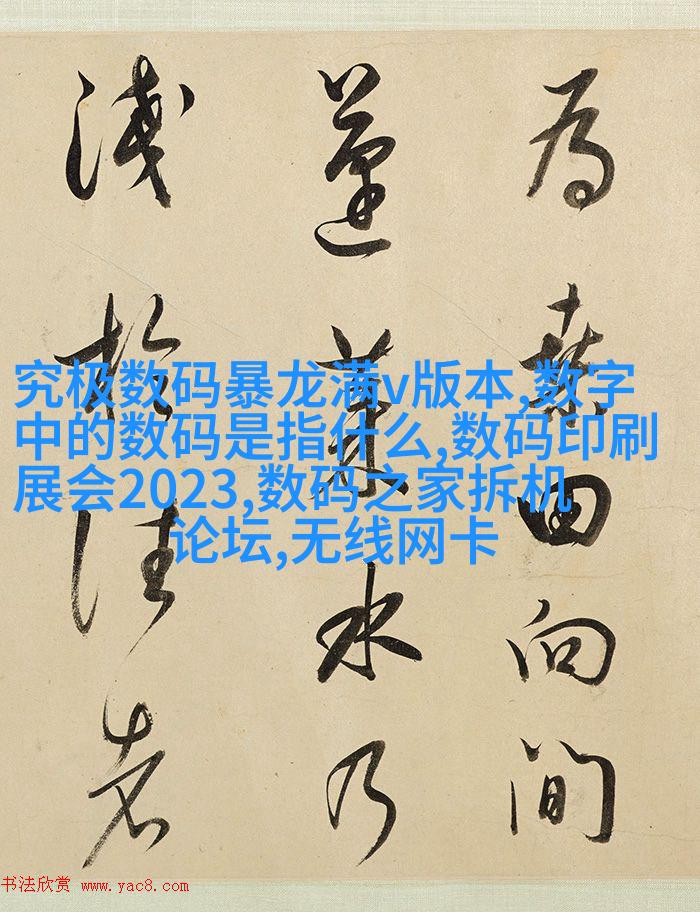 為桑田向間
蓬萊水乃
淺於往者
究极数码暴龙满v版本,数字
中的数码是指什么,数码印刷
展会2023,数码之家拆机
论坛,无线网卡
书法欣赏 www.yac8.com